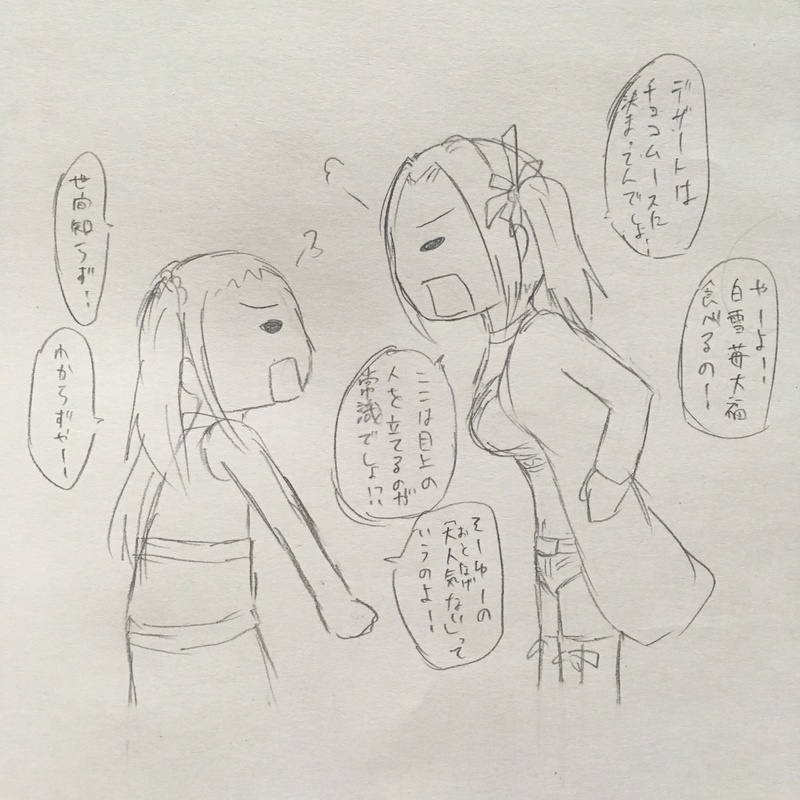 デザートは
チョコムースに
決まってんでしょ!
やーよー!
白雪苺大福
食べるのー!
ここは目上の
人を立てるのが
常識でしょ!?
そーゆーの
「大人気ない」って
おとなげ
いうのよー!
世間知らず!
わからずやー!